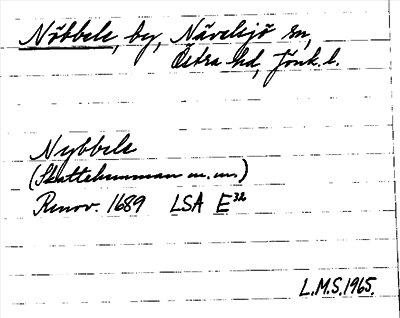 Nöbbele, by, Nävelsjö sn,
Östra hd, Jönk. l.
Nybbele
(Skattehemman m. m.)
Renov. 1689 LSA E³²
L.M.S. 1965.